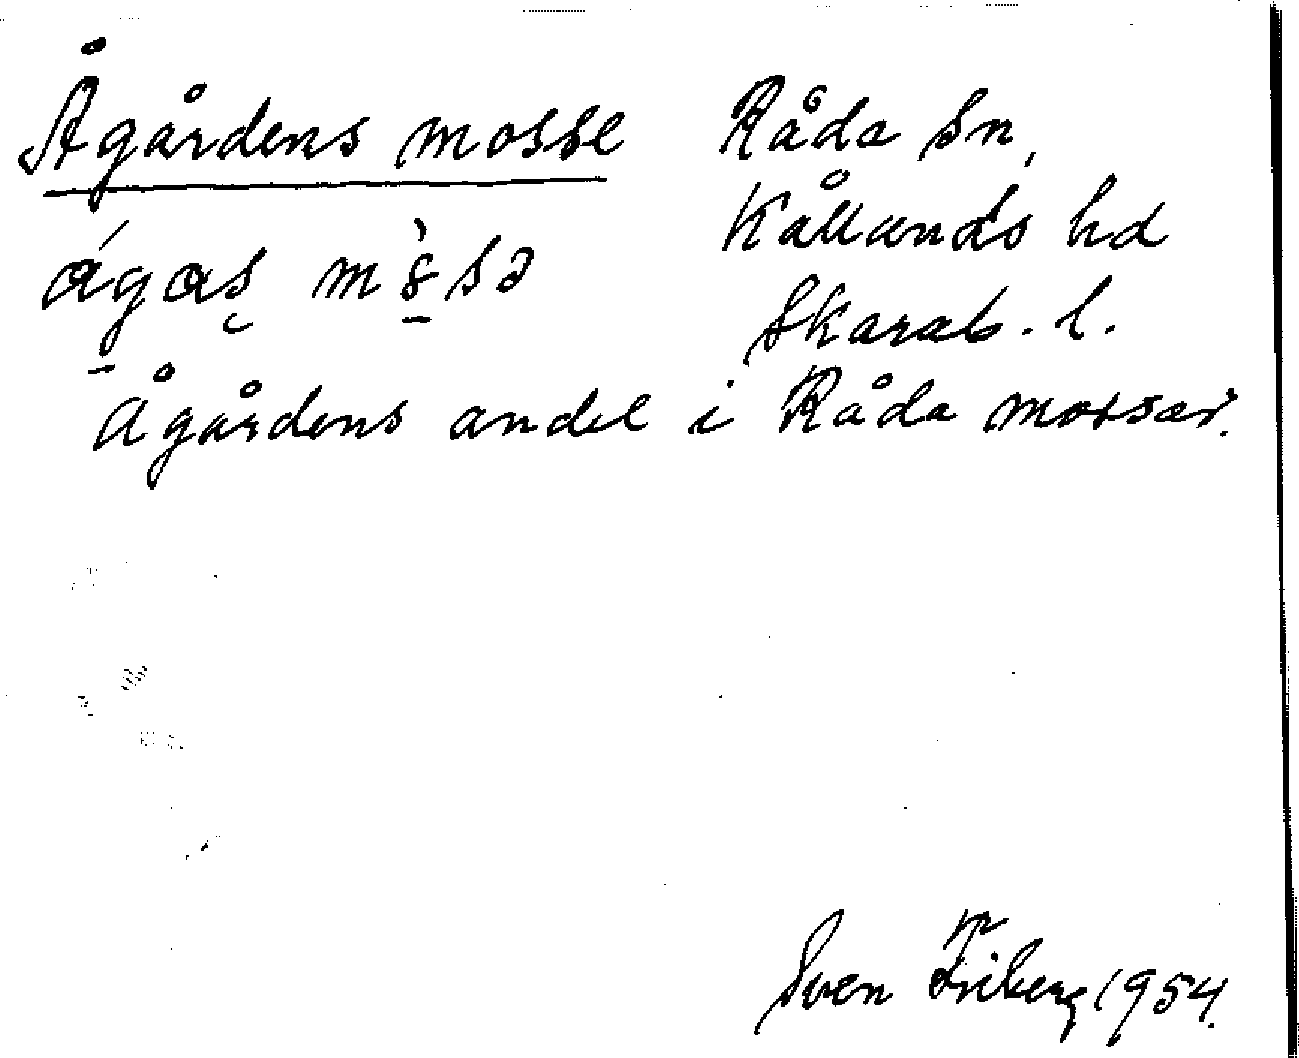 Ågårdens mosse
Råda sn,
Kållands hd
Skarab. l.
Ågårdens andel i Råda mossar.
Sven Friberg 1954.